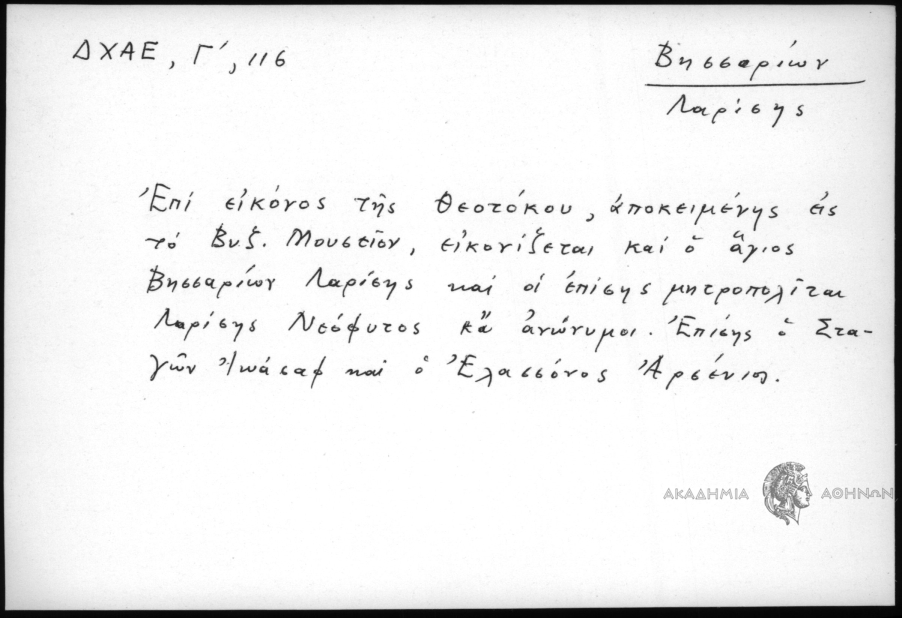 ΔΧΑΕ, Γ΄, 116
Βησσαρίων
Λαρίσης
Ἐπί εἰκόνος τῆς Θεοτόκου, ἀποκειμένης εἰς
τό Βυζ. Μουσεῖον, εἰκονίζεται καί ὁ ἅγιος
Βησσαρίων Λαρίσης καί οἱ ἐπίσης μητροπολῖται
Λαρίσης Νεόφυτος κἄ ἀνώνυμοι. Ἐπίσης ὁ Στα-
γῶν Ἰωάσαφ καί ὁ Ἐλασσόνος Ἀρσένιος.
ΑΚΑΔΗΜΙΑ ΑΘΗΝΩΝ